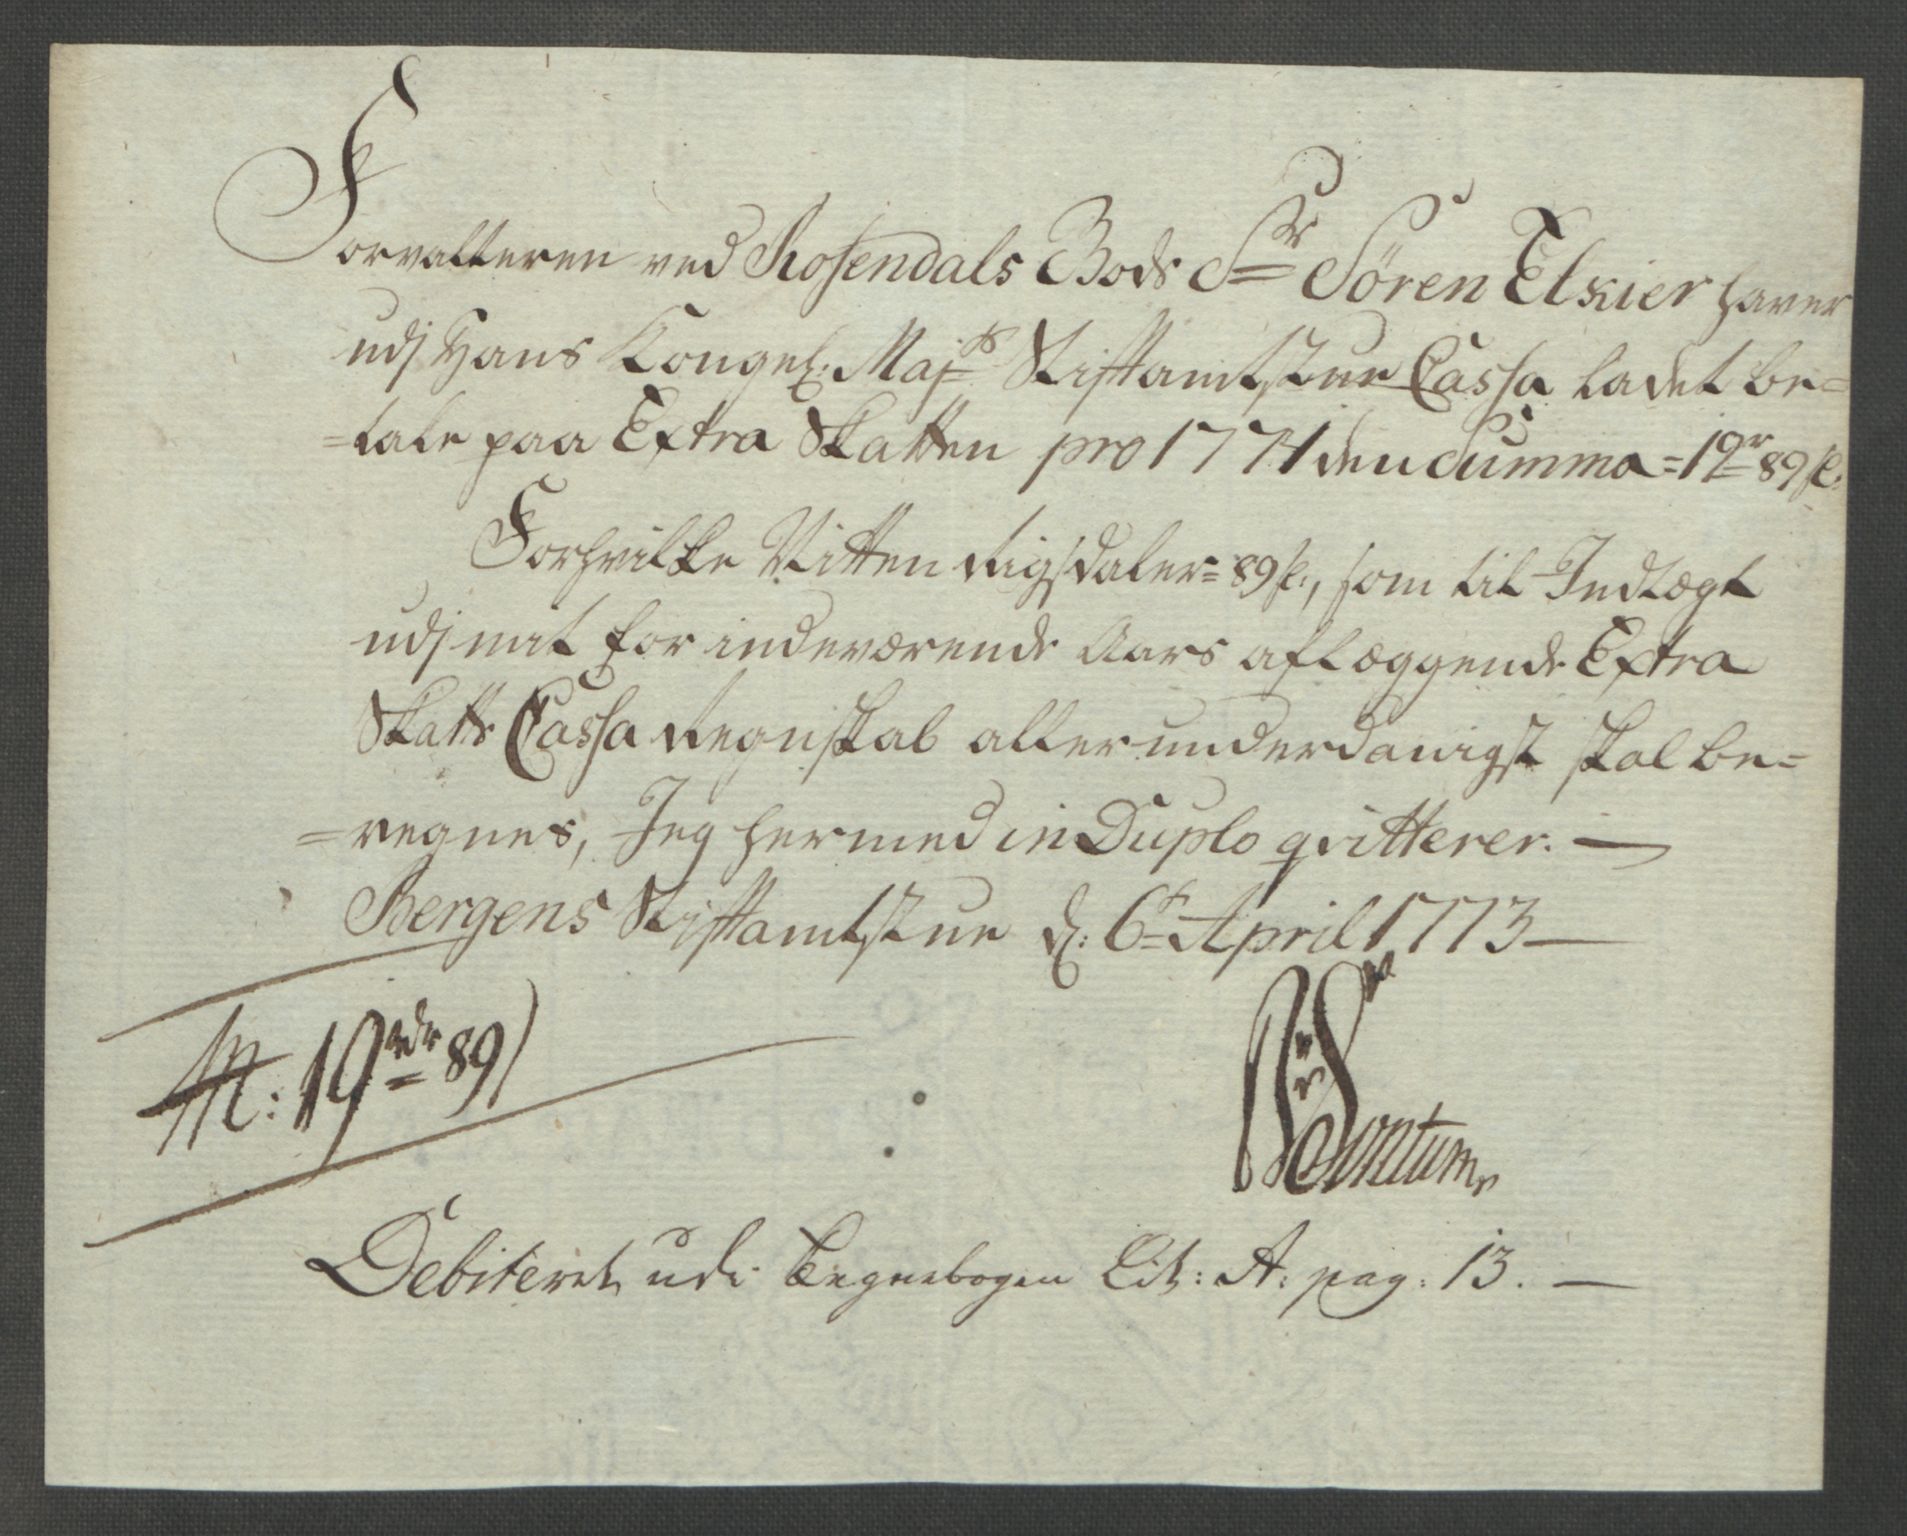 Forvalteren ved Rosendals Gods Sr Sören Elskier haver
udj Hans Kongel: Majts Stiftamtstue Cassa ladet be=
=tale paa Extra Skatten pro 1771 den Summa = 19r 89 s:
Forhvilke Nitten Rigsdaler = 89 s:, som til Indtægt
udj mit for indeværende Aars aflæggende Extra
Skatts Cassa Regnskab allerunderdanigst skal be=
=regnes, Jeg hermed in Duplo qvitterer. —
Bergens Stiftamtstue d: 6t April 1773 —
19 rdr 89
Sontum
Debiteret udi Regnebogen Lit: A: pag: 13. —